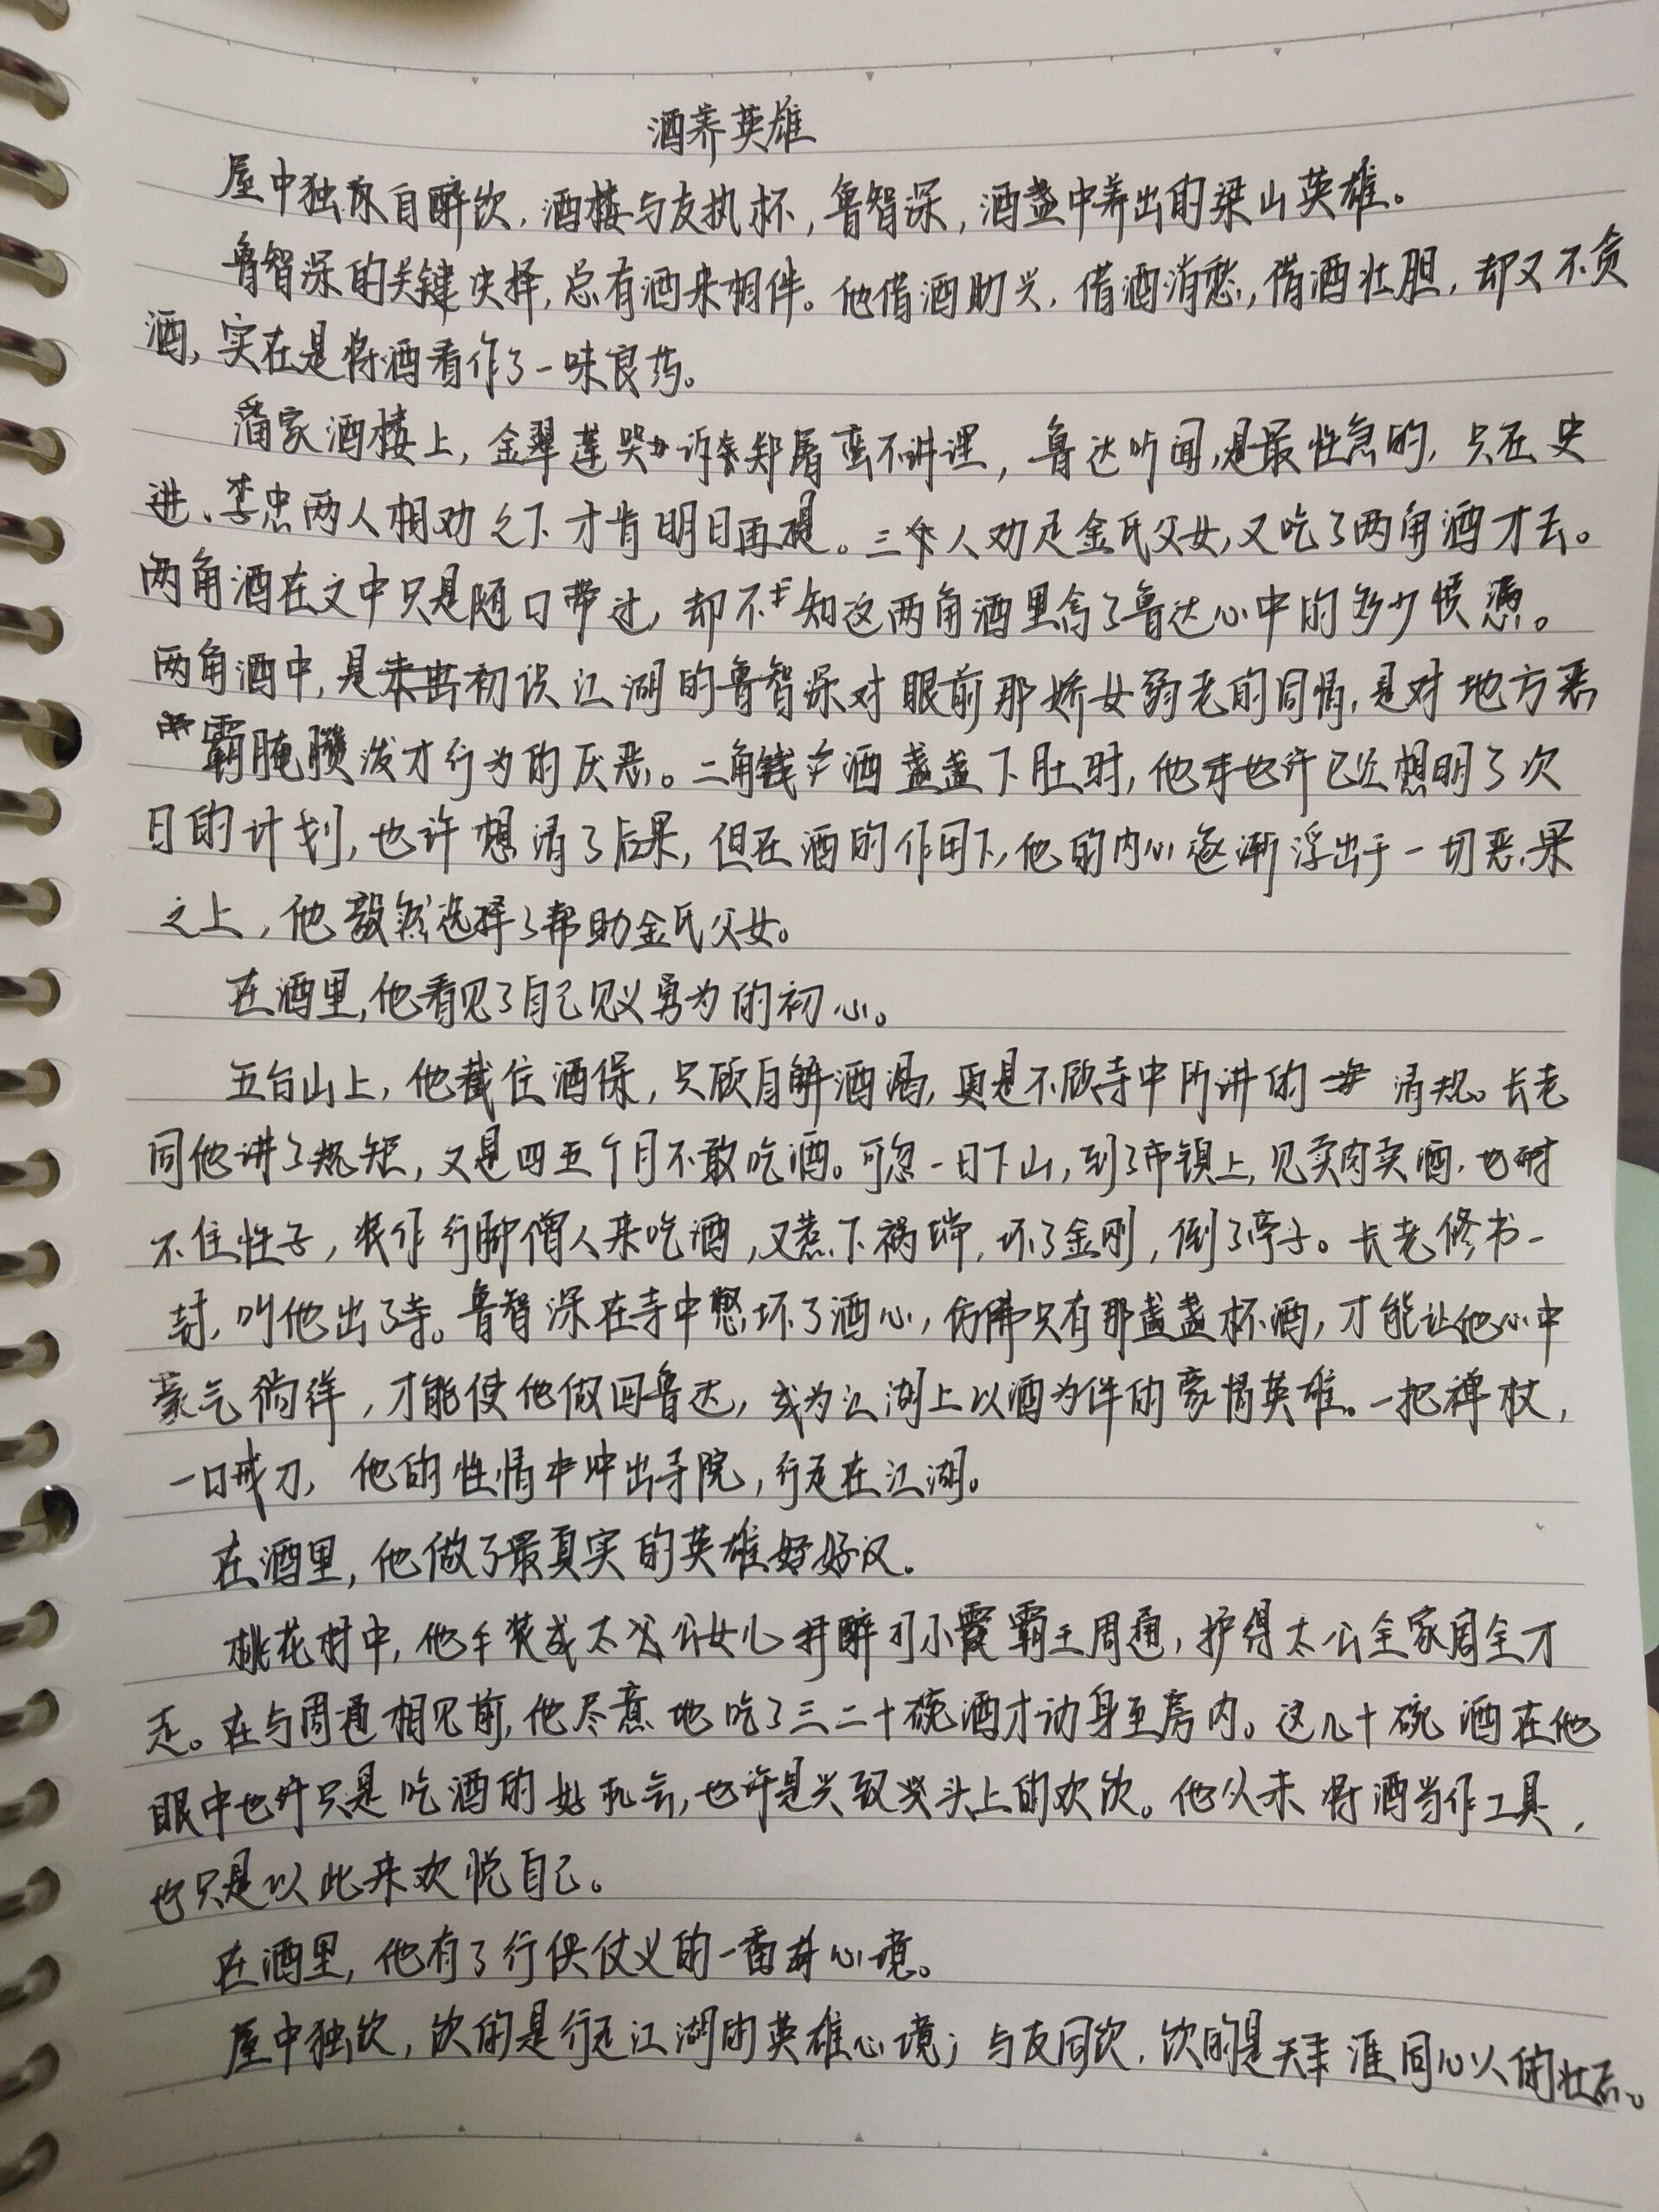 酒养英雄
屋中独自醉饮，酒楼与友执杯，鲁智深，酒盏中养出的梁山英雄。
鲁智深的关键决择，总有酒来相伴。他借酒助兴，借酒消愁，借酒壮胆，却又不贪
酒，实在是将酒看作了一味良药。
潘家酒楼上，金翠莲哭诉郑屠蛮不讲理，鲁达听闻，是最性急的，只在史
进、李忠两人相劝之下才肯明日再提。三人劝走金氏父女，又吃了两角酒才去。
两角酒在文中只是随口带过，却不知这两角酒里含了鲁达心中的多少愤懑。
两角酒中，是初识江湖的鲁智深对眼前那娇女弱老的同情，是对地方恶
霸腌臜泼才行为的厌恶。二角酒盏盏下肚时，他也许已经想明了次
日的计划，也许想清了后果，但在酒的作用下，他的内心逐渐浮出于一切恶果
之上，他毅然选择了帮助金氏父女。
在酒里，他看见了自己见义勇为的初心。
五台山上，他截住酒保，只顾自解酒渴，更是不顾寺中所讲的清规。长老
同他讲了规矩，又是四五个月不敢吃酒。可忽一日下山，到了市镇上，见卖肉卖酒，也耐
不住性子，装作行脚僧人来吃酒，又惹下祸端，坏了金刚，倒了亭子。长老修书一
封，叫他出了寺。鲁智深在寺中憋坏了酒心，仿佛只有那盏盏杯酒，才能让他心中
豪气徜徉，才能使他做回鲁达，或为江湖上以酒为伴的豪情英雄。一把禅杖，
一口戒刀，他的性情冲出寺院，行走在江湖。
在酒里，他做了最真实的英雄好汉。
桃花村中，他装成太公女儿醉打小霸王周通，护得太公全家周全才
走。在与周通相见前，他尽意地吃了二十碗酒才动身至房内。这几十碗酒在他
眼中也许只是吃酒的好机会，也许是兴致头上的欢饮。他从未将酒当作工具，
也只是以此来欢悦自己。
在酒里，他有了行侠仗义的一番心境。
屋中独饮，饮的是行走江湖的英雄心境；与友同饮，饮的是天涯同心人的壮志。